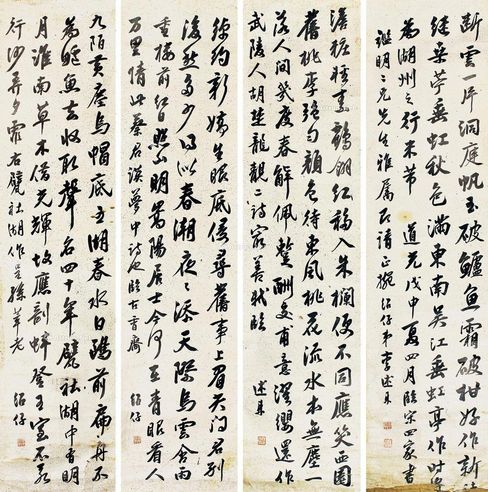 斷雲一片洞庭帆玉破鱸魚霜破柑好作新詩
繼桑苧垂虹秋色滿東南吳江垂虹亭作時將
為湖州之行米芾 道光戊申夏四月臨宋四家書
鑑明二元先生雅屬即請正捥 紹仔弟李述來
鶴翎紅移入朱欄便不同應笑西園
舊桃李強勻顏色待東風桃花流水本無塵一
落人間幾度春解佩暫酬交甫意濯纓還作
武陵人胡楚龍靚二詩 善狀臨 述來
綽約新嬌生眼底侵尋舊事上眉尖問君別
後愁多少得似春潮夜夜添天際烏雲含雨
重樓前紅日照山明嵩陽居士今何在青眼看人
萬里情此蔡君謨夢中詩也臨古香齋 紹仔
九陌黃塵烏帽底五湖春水白鷗前扁舟不
為鱸魚去收取聲名四十年甓社湖中有明
月淮南草木借光輝故應剖蚌登王室不若
行沙弄夕霏右甓社湖作呈孫莘老 紹仔